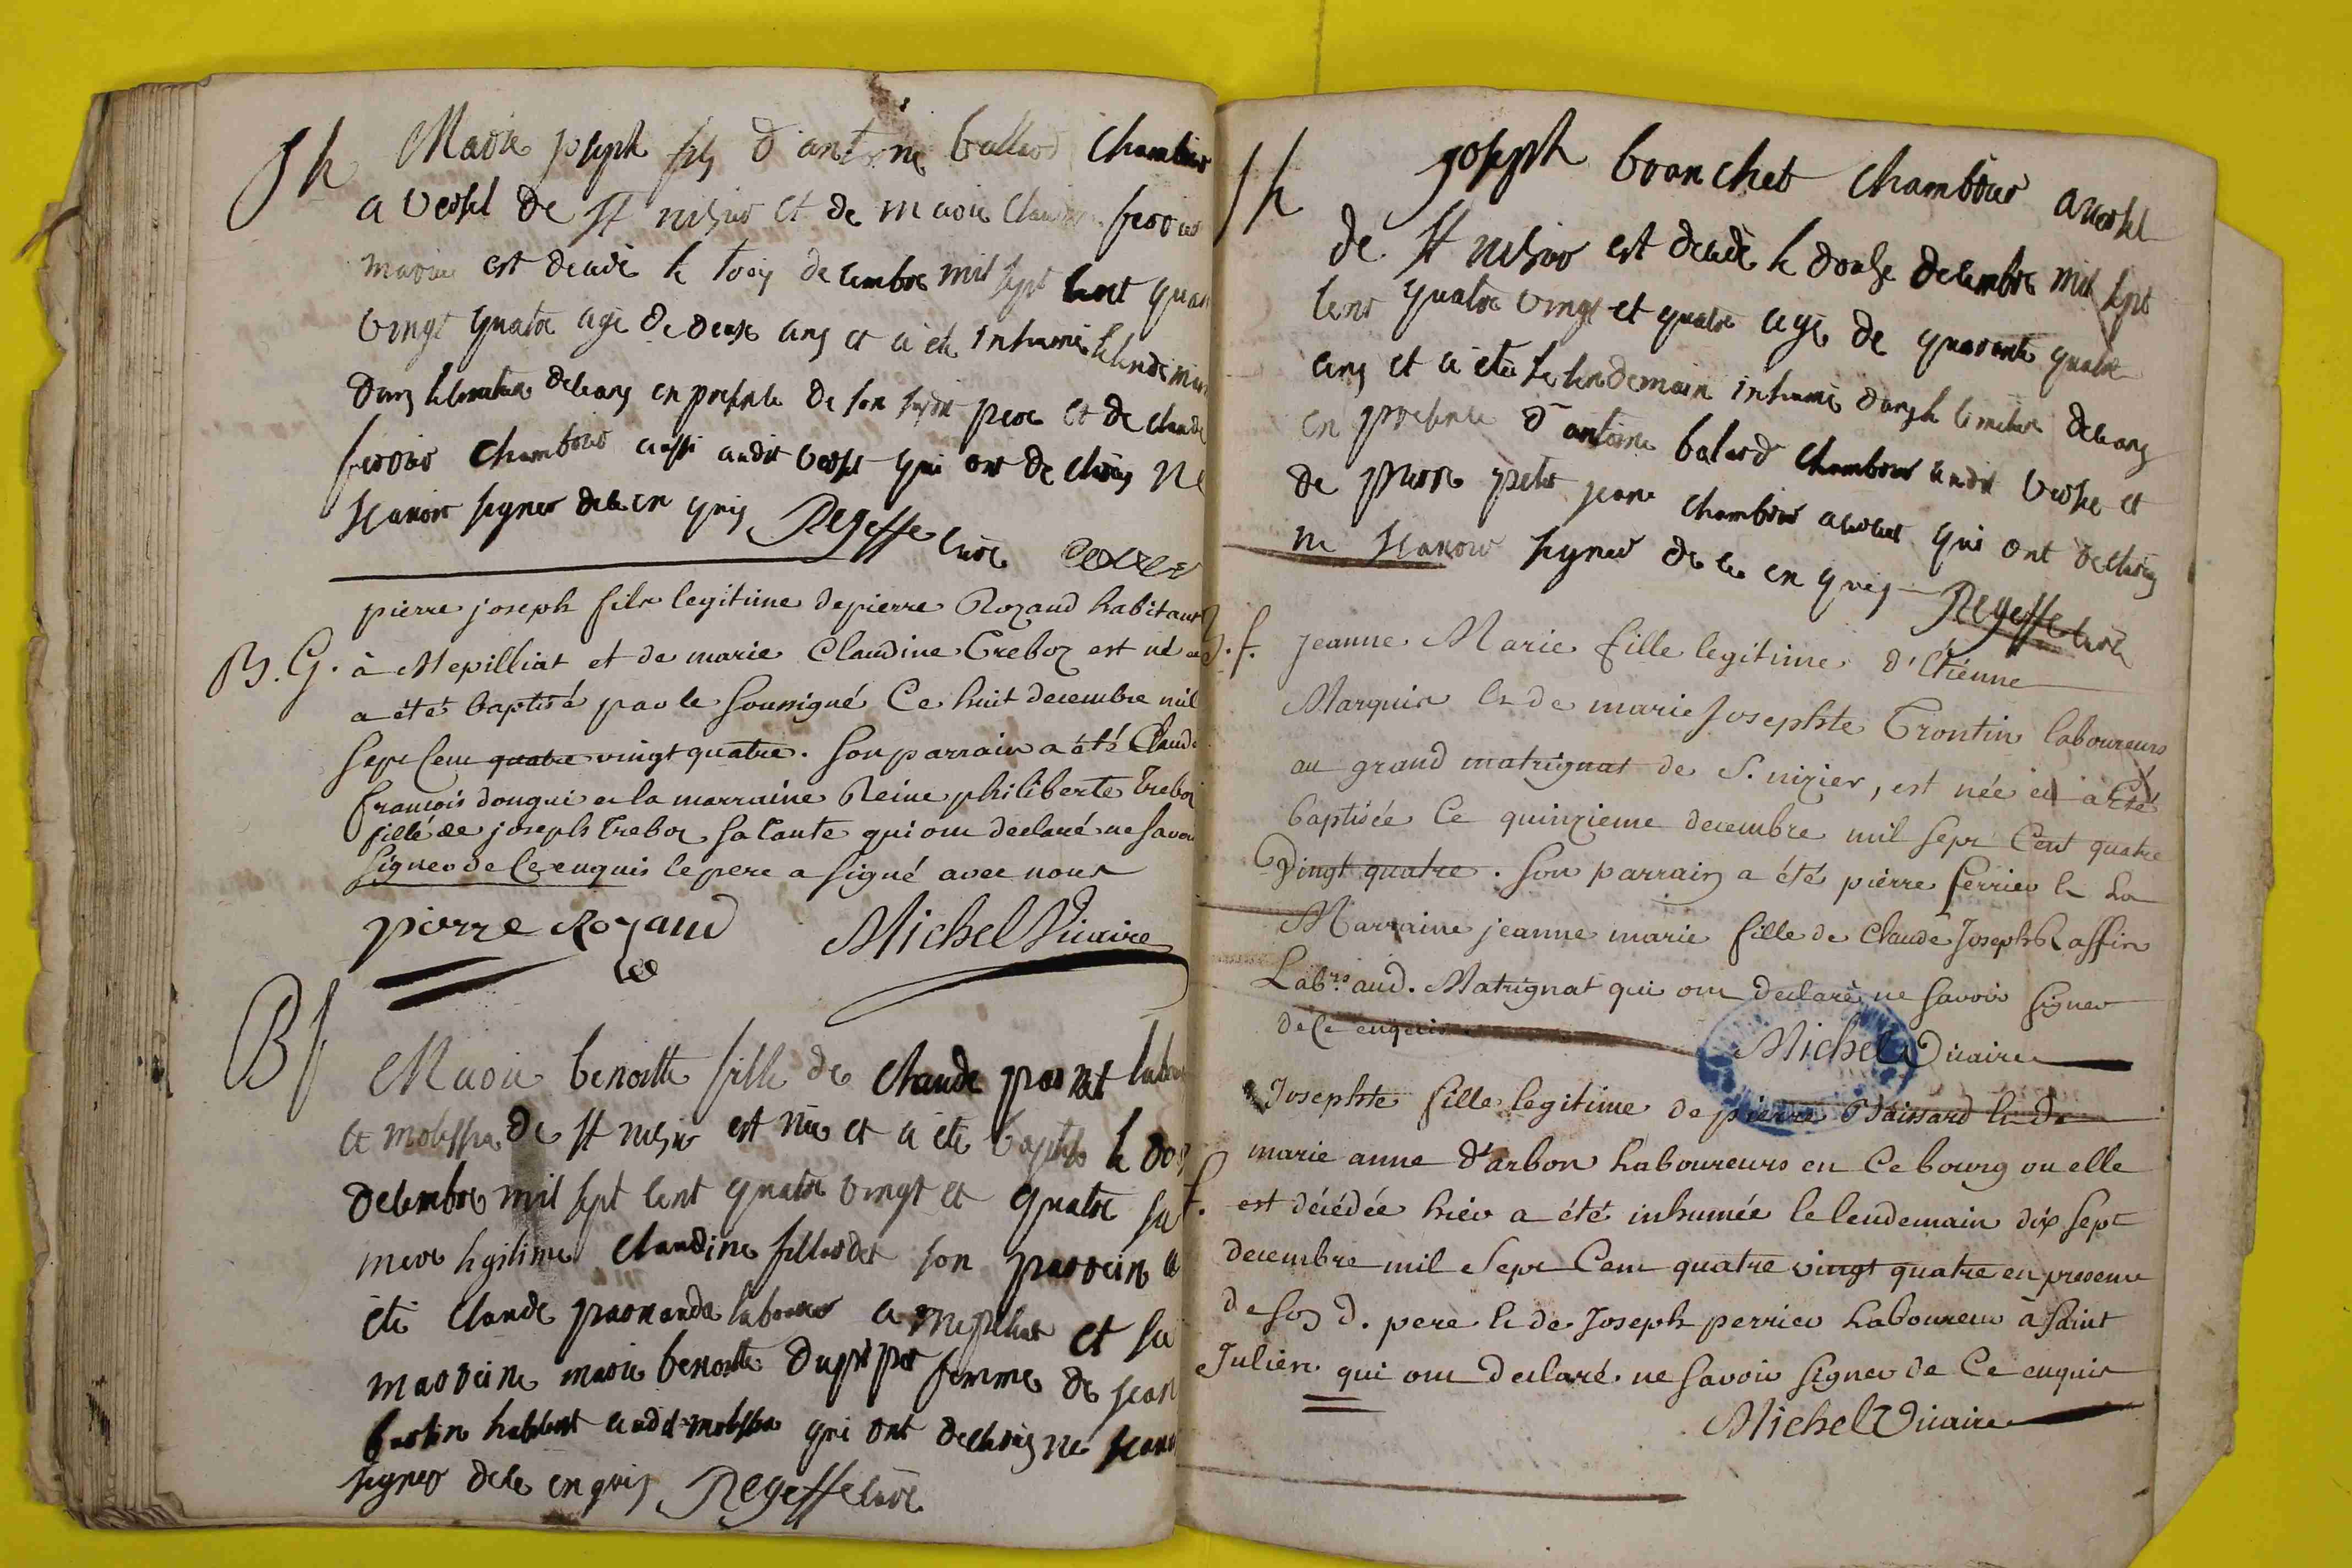 Sh Marie joseph fils d'antoine ballard Chambrier
a versel de st nisier et de marie Claudine ferrier
mariés est decedé le trois decembre mil sept cent quatre
vingt quatre agé de deux ans et a été inhumé le lendemain
dans le cimetiere de ceans en presence de son susdit pere et de claude
ferrier chambrier aussi audit versel qui ont declarés ne
scavoir signer de ce en quis Regeffe curé
pierre joseph fils legitime de pierre Rozand habitant
B. G. à Mepilliat et de marie Claudine Treboz est né et
a été baptisé par le soussigné Ce huit decembre mil
sept Cent quatre vingt quatre. Son parrain a été Claude
françois donqui et la marraine Reine philiberte Treboz
fille de joseph Treboz sa tante qui ont declaré ne savoir
signer de Ce enquis le pere a signé avec nous
pierre Rozand Michel Vicaire
Bf
Marie benoitte fille de Claude
de st nisier est née et a été baptisée le
decembre mil sept cent quatre vingt et quatre sa
mere legitime Claudine son parrain a
été claude a mepilliat et sa
marraine marie benoitte femme de jean
habitant audit qui ont declarés ne scavoir
signer de ce en quis Regeffe curé
Sh joseph branchet chambrier a versel
de st nisier est decedé le douze decembre mil sept
cent quatre vingt et quatre agé de quarante quatre
ans et a été le lendemain inhumé dans le cimetiere de ceans
en presence d'antoine balard chambrier audit versel et
de pierre petit jean chambrier a versel qui ont declarés
ne scavoir signer de ce en quis Regeffe curé
B. f. jeanne Marie fille legitime d'Etienne
Marquis & de marie Josephte Trontin laboureurs
au grand matrignat de S. nizier, est née et a été
baptisée Ce quinzieme decembre mil sept Cent quatre
Vingt quatre. Son parrain a été pierre ferrier & La
Marraine jeanne marie fille de Claude Joseph Raffin
Labrs. aud. Matrignat qui ont declaré ne savoir signer
de Ce enquis
Michel Vicaire
Josephte fille legitime de pierre Vaissard & de
marie anne d'arbon Laboureurs en Ce bourg ou elle
est décédée hier a été inhumée le lendemain dix sept
decembre mil Sept Cent quatre vingt quatre en presence
de son d. pere & de Joseph perrier Laboureur à saint
Julien qui ont declaré ne savoir signer de Ce enquis
Michel Vicaire